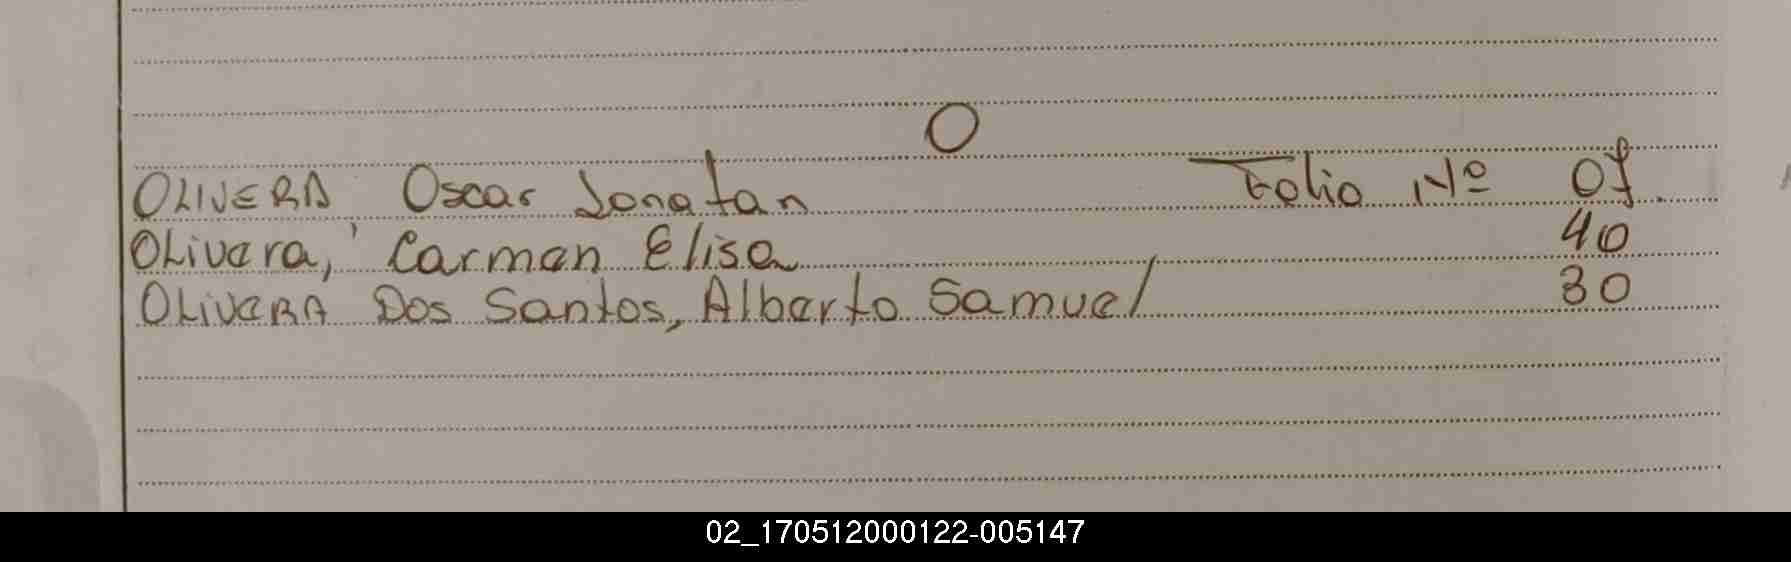 O
OLIVERA Oscar Jonatan Folio Nº 07.
OLivera, Carmen Elisa 40
OLiveRA Dos Santos, Alberto Samuel 30
02_170512000122-005147